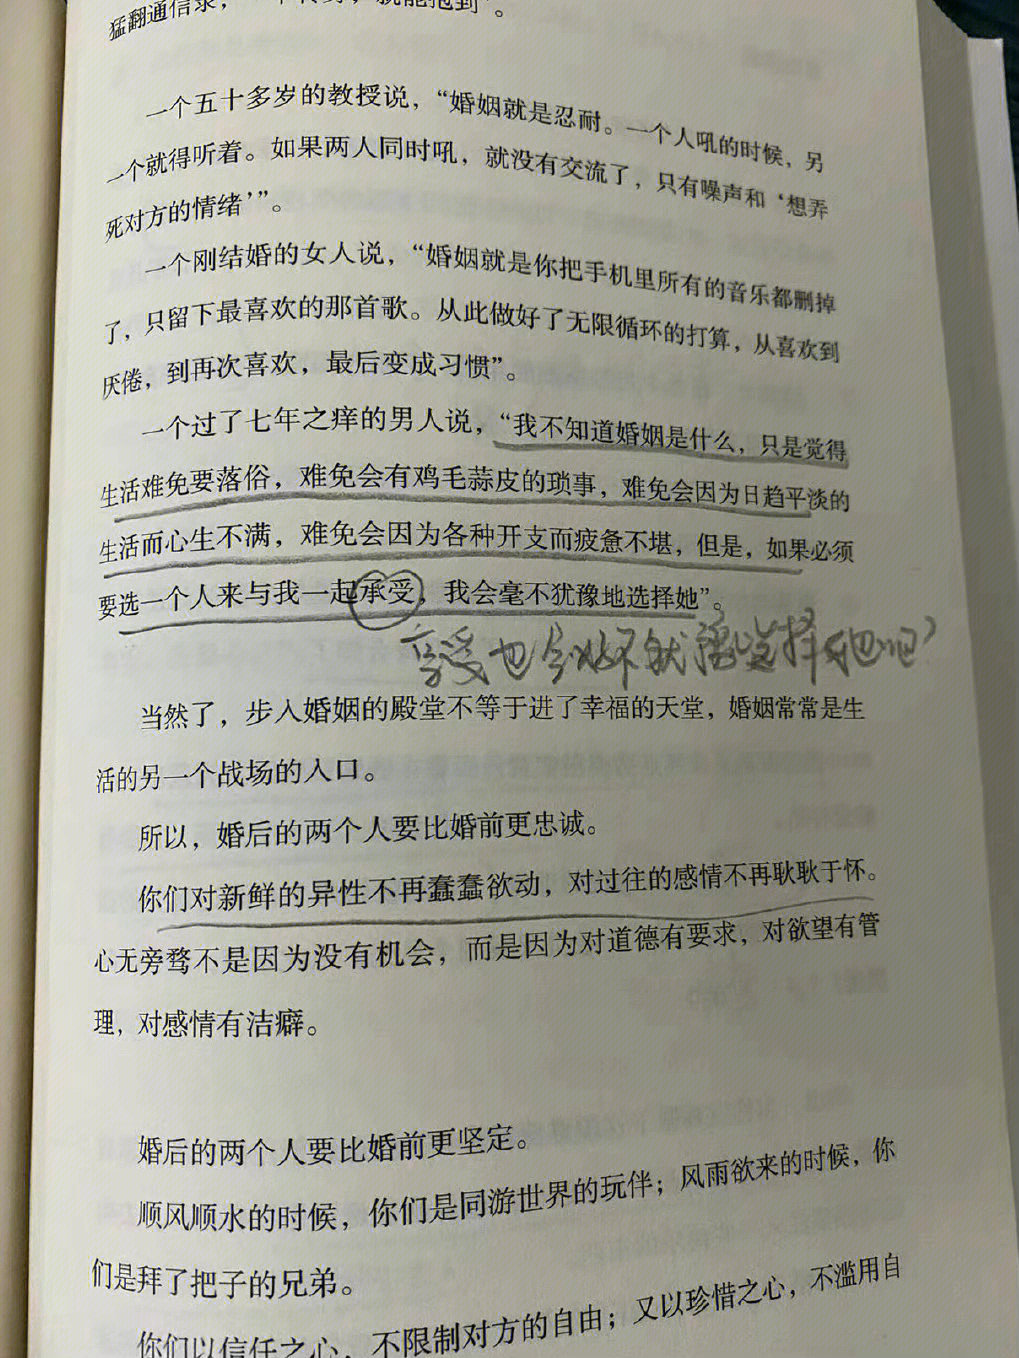 猛翻通信录，
一个五十多岁的教授说，“婚姻就是忍耐。一个人吼的时候，另
一个就得听着。如果两人同时吼，就没有交流了，只有噪声和‘想弄
死对方的情绪’”。
一个刚结婚的女人说，“婚姻就是你把手机里所有的音乐都删掉
了，只留下最喜欢的那首歌。从此做好了无限循环的打算，从喜欢到
厌倦，到再次喜欢，最后变成习惯”。
一个过了七年之痒的男人说，“我不知道婚姻是什么，只是觉得
生活难免要落俗，难免会有鸡毛蒜皮的琐事，难免会因为日趋平淡的
生活而心生不满，难免会因为各种开支而疲惫不堪，但是，如果必须
要选一个人来与我一起承受，我会毫不犹豫地选择她”。
享受也会毫不犹豫选择他吧？
当然了，步入婚姻的殿堂不等于进了幸福的天堂，婚姻常常是生
活的另一个战场的入口。
所以，婚后的两个人要比婚前更忠诚。
你们对新鲜的异性不再蠢蠢欲动，对过往的感情不再耿耿于怀。
心无旁骛不是因为没有机会，而是因为对道德有要求，对欲望有管
理，对感情有洁癖。
婚后的两个人要比婚前更坚定。
顺风顺水的时候，你们是同游世界的玩伴；风雨欲来的时候，你
们是拜了把子的兄弟。
你们以信任之心，不限制对方的自由；又以珍惜之心，不滥用自